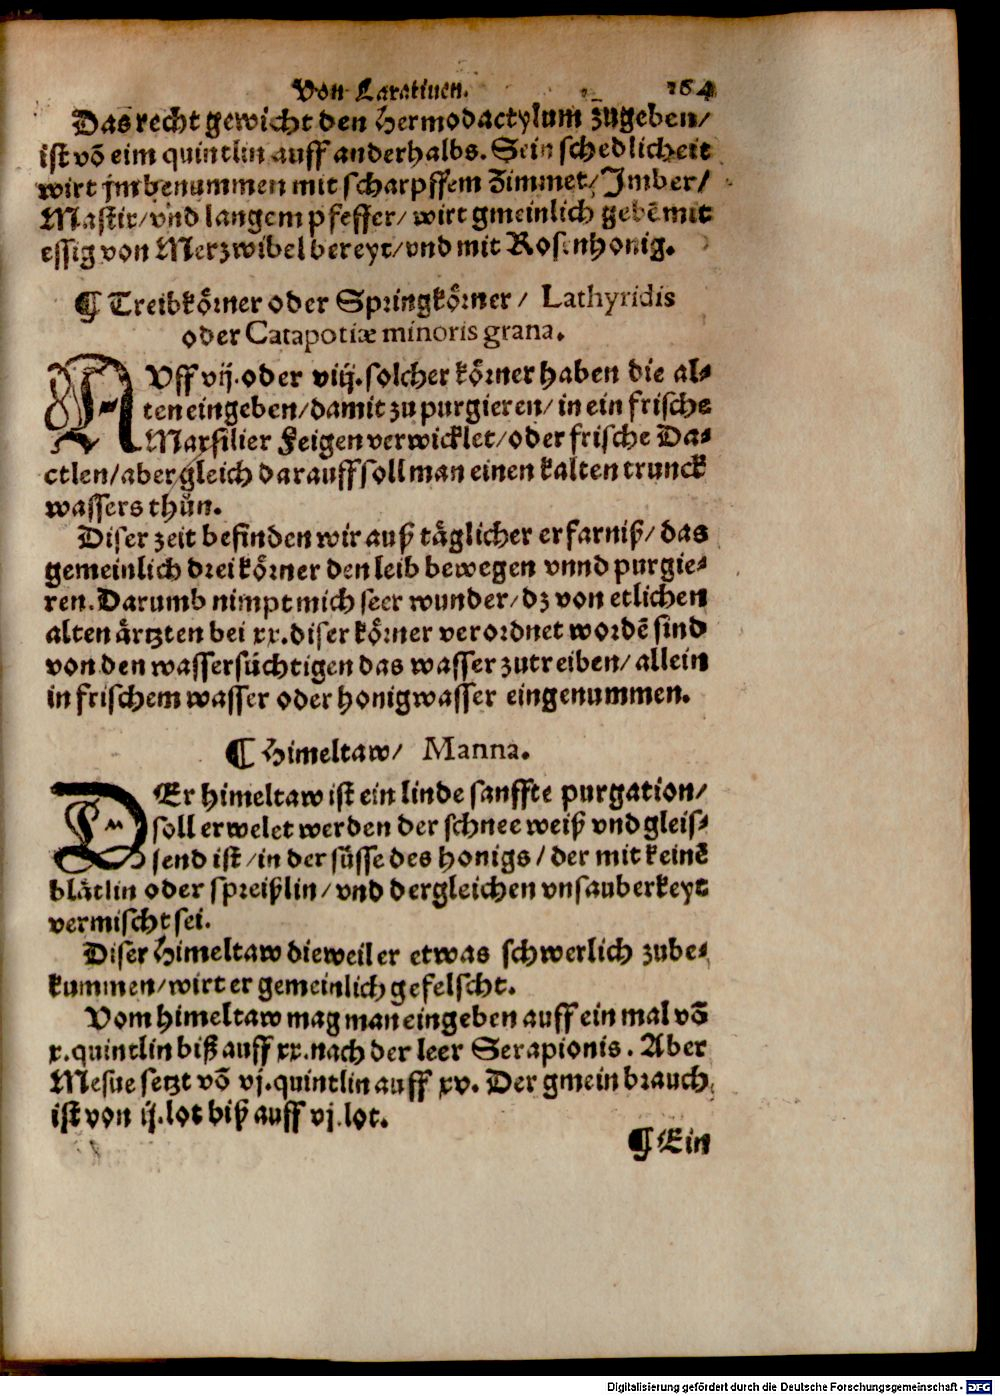 Von Laxatiuen. 164
Das recht gewicht den Hermodactylum zůgeben/
ist võ eim quintlin auff anderhalbs. Sein schedlicheit
wirt jm benummen mit scharpffem Zimmet/ Imber/
Mastix/ vnd langem pfeffer/ wirt gmeinlich gebẽ mit
essig von Merzwibel bereyt/ vnd mit Rosenhonig.
¶ Treibkoͤrner oder Springkoͤrner/ Lathyridis
oder Catapotiæ minoris grana.
AVff vij. oder viij. solcher koͤrner haben die al⸗
ten eingeben/ damit zu purgieren/ in ein frische
Marsilier Feigen verwicklet/ oder frische Da⸗
ctlen/ aber gleich darauff soll man einen kalten trunck
wassers thůn.
Diser zeit befinden wir auß taͤglicher erfarniß/ das
gemeinlich drei koͤrner den leib bewegen vnnd purgie⸗
ren. Darumb nimpt mich seer wunder/ dz von etlichen
alten aͤrtzten bei xx. diser koͤrner verordnet wordẽ sind
von den wassersüchtigen das wasser zutreiben/ allein
in frischem wasser oder honigwasser eingenummen.
¶ Himeltaw/ Manna.
DEr himeltaw ist ein linde sanffte purgation/
soll erwelet werden der schneeweiß vnd gleis⸗
send ist/ in der süsse des honigs/ der mit keinẽ
blaͤtlin oder spreißlin/ vnd dergleichen vnsauberkeyt
vermischt sei.
Diser Himeltaw dieweil er etwas schwerlich zube⸗
kummen/ wirt er gemeinlich gefelscht.
Vom himeltaw mag man eingeben auff ein mal võ
x. quintlin biß auff xx. nach der leer Serapionis. Aber
Mesue setzt võ vj. quintlin auff xv. Der gmein brauch
ist von ij. lot biß auff vj. lot.
¶ Ein
Digitalisierung gefördert durch die Deutsche Forschungsgemeinschaft - DFG